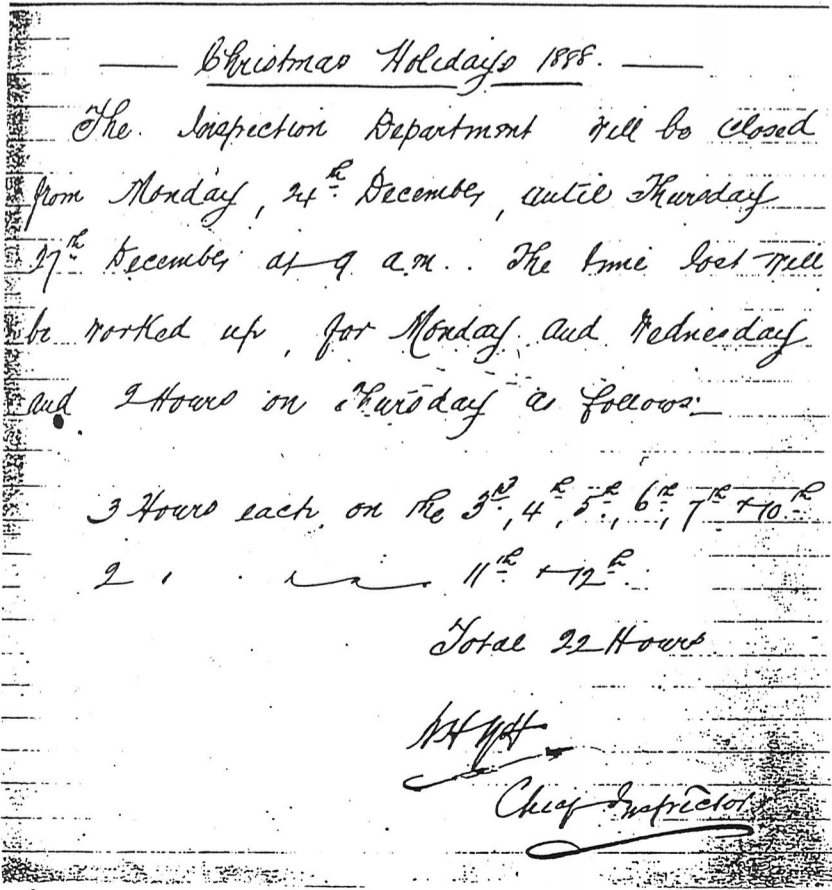 Christmas Holidays 1888.
The Inspection Department will be closed
from Monday, 24th December, until Thursday
27th December at 9 a.m.. The time lost will
be worked up, for Monday and Wednesday
and 2 Hours on Thursday as follows:-
3 Hours each, on the 3rd, 4th, 5th, 6th, 7th + 10th
2 " " " 11th + 12th.
Total 22 Hours
Chief Inspector